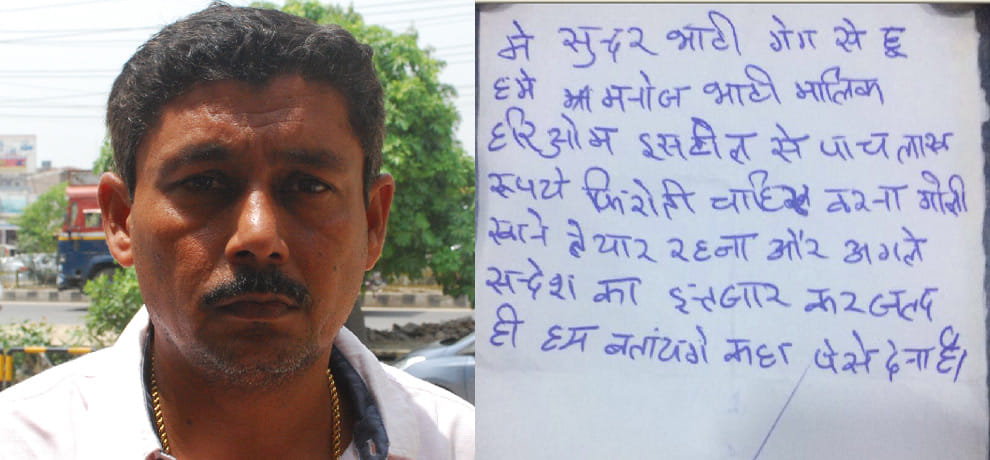 मे सुन्दर भाटी गेग से हू
हमे मनोज भाटी मालिक
हरिओम इसटील से पाच लाख
रूपये फिरोती चाहिए वरना गोली
खाने तेयार रहना और अगले
सन्देश का इन्तजार कर जल्द
ही हम बतांयगे कहा पेसे देना है।